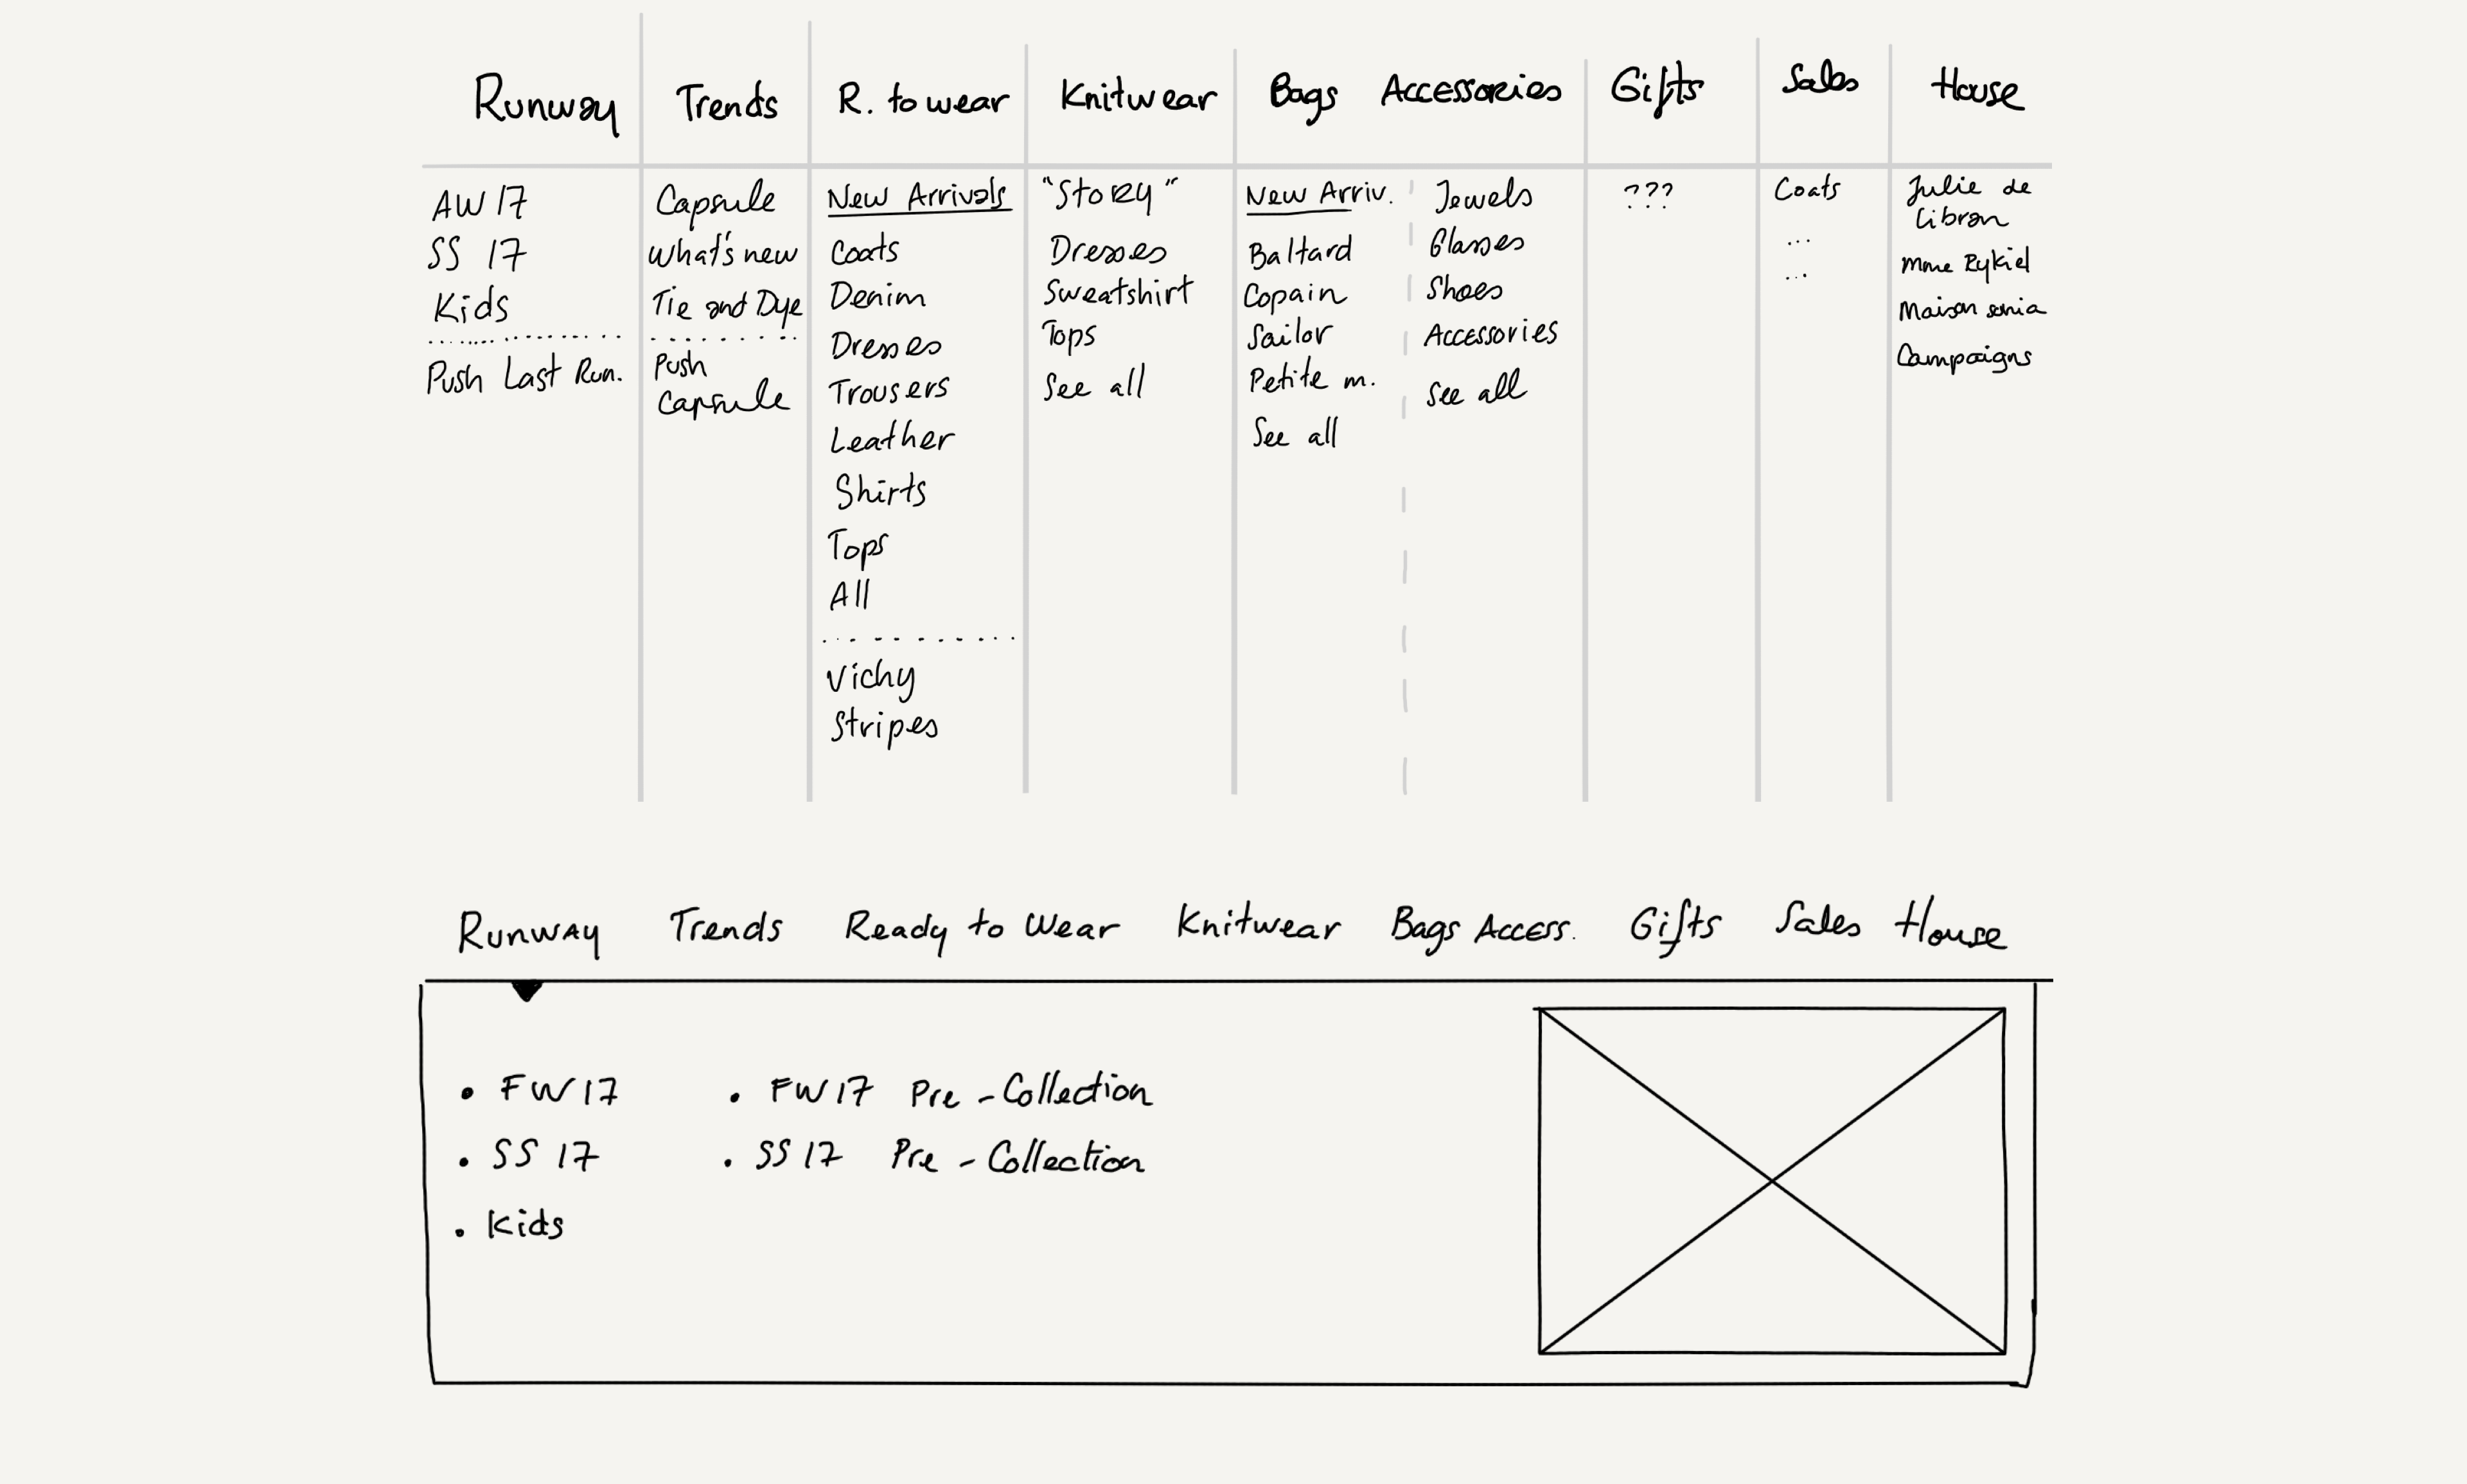 Runway
Trends
R. to wear
Knitwear
Bags
Accessories
Gifts
Sales
House
AW 17
SS 17
Kids
Push Last Run.
Capsule
What's new
Tie and Dye
Push
Capsule
New Arrivals
Coats
Denim
Dresses
Trousers
Leather
Shirts
Tops
All
Vichy
Stripes
"Story"
Dresses
Sweatshirt
Tops
See all
New Arriv.
Baltard
Copain
Sailor
Petite m.
See all
Jewels
Glasses
Shoes
Accessories
See all
???
Coats
...
...
Julie de
Libran
Mme Rykiel
Maison sonia
Campaigns
Runway Trends Ready to Wear Knitwear Bags Access. Gifts Sales House
• FW17
• SS 17
• Kids
• FW17 Pre-Collection
• SS17 Pre-Collection